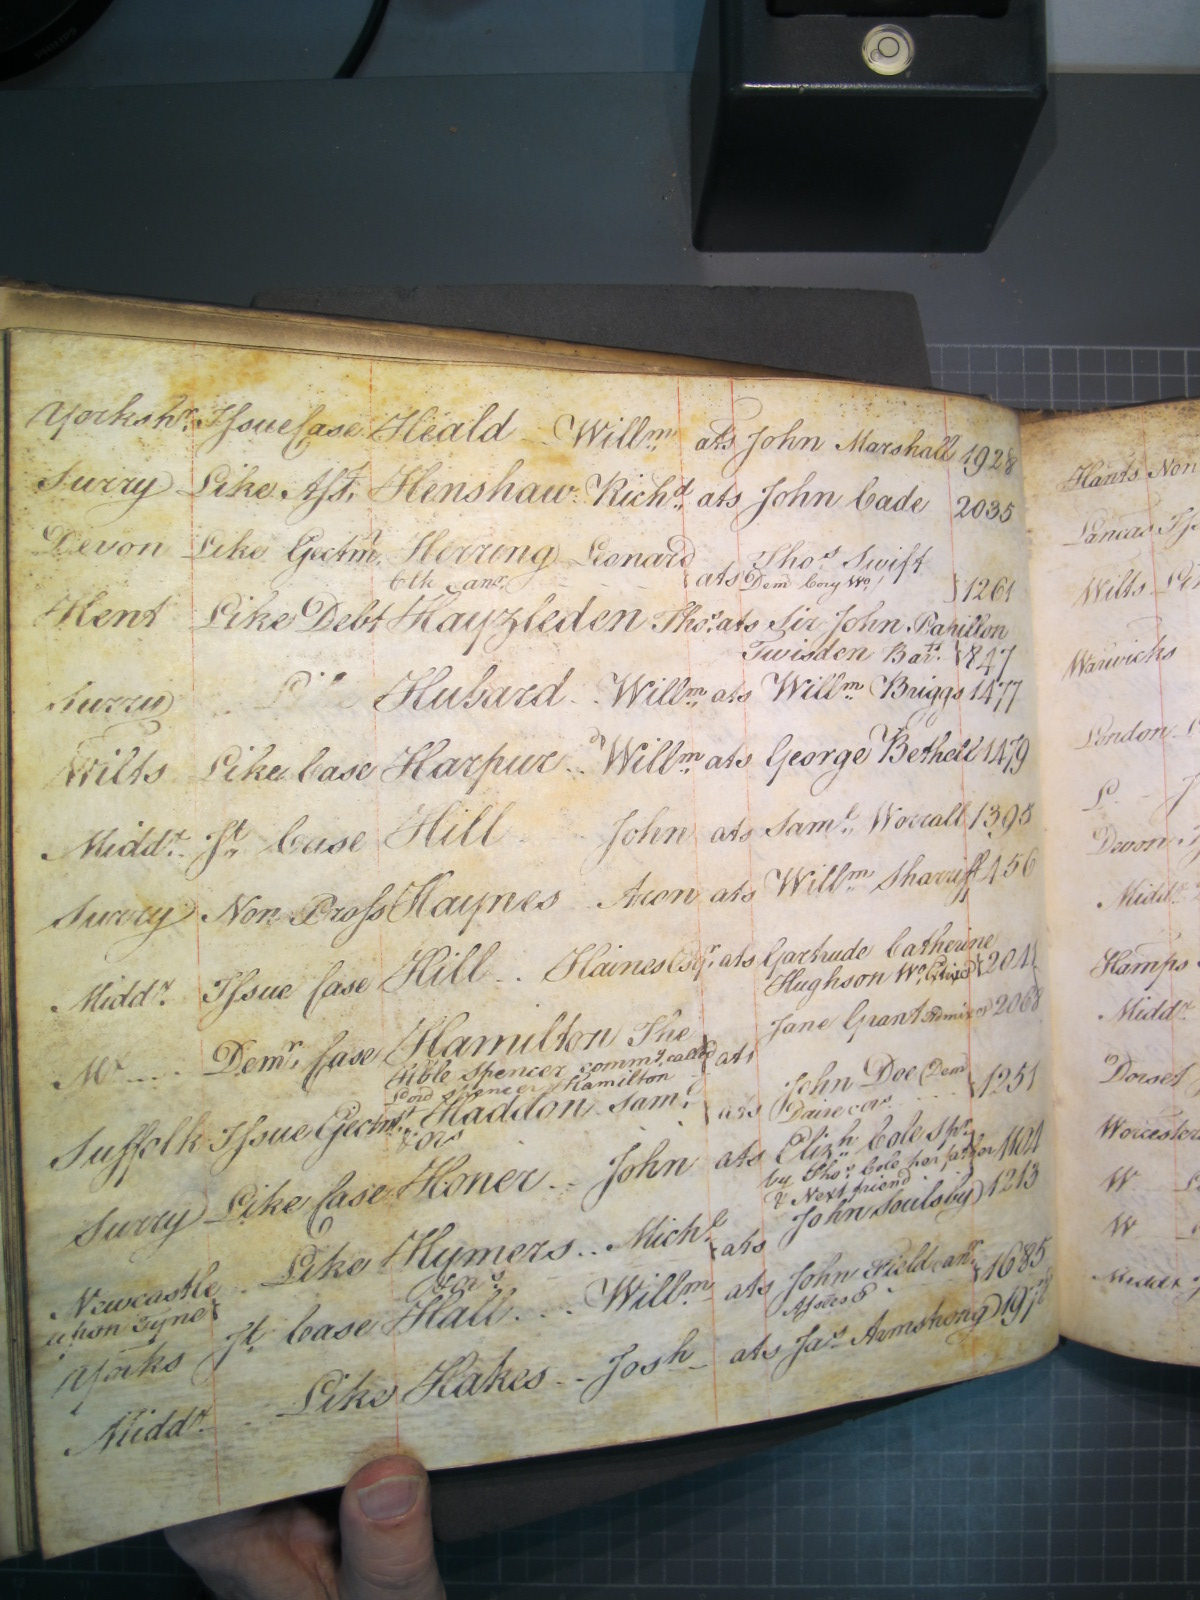 Yorkshr. Issue Case Heald Willm. ats John Marshall 1928
Surry Like Asst. Henshaw Richd. ats John Cade 2035
Devon Like Eject Herring Leonard ats Thos. Swift
1261
Kent Like Debt Hayzleden Thos. ats Sir John Papillon
Twisden Bart. 1847
Surry Hubard Willm. ats Willm. Briggs 1477
Wilts Like Case Harpur Willm. ats George Bethell 1479
Middx. Jt. Case Hill John ats Saml. Worrall 1395
Surry Non Pross Haynes Aron ats Willm. Sharriff 456
Middx. Issue Case Hill Haines Esqr. ats Gartrude Catherine
Hughson Wo. 2041
M Demr. Case Hamilton The ats Jane Grant Admix 2068
Hble Spencer commy. called
Lord Spencer Hamilton
Suffolk Issue Haddon Saml. ats John Doe Dem 1251
& ors
Surry Like Case Honer John ats Elizh. Cole spr. 1101
by Thos. Cole her father
& Next friend
Newcastle Like Hymers Michl. ats John Soulsby 1213
upon Tyne
Yorks Jt. Case Hall Willm. ats John Field 1685
Assees
Middx. Like Hakes Josh ats Jas. Armstrong
Hants Non
Lancas
Wilts
Warwichs
London
Devon
Middx.
Hamps
Middx.
Dorset
Worcester
W
W
Middx.